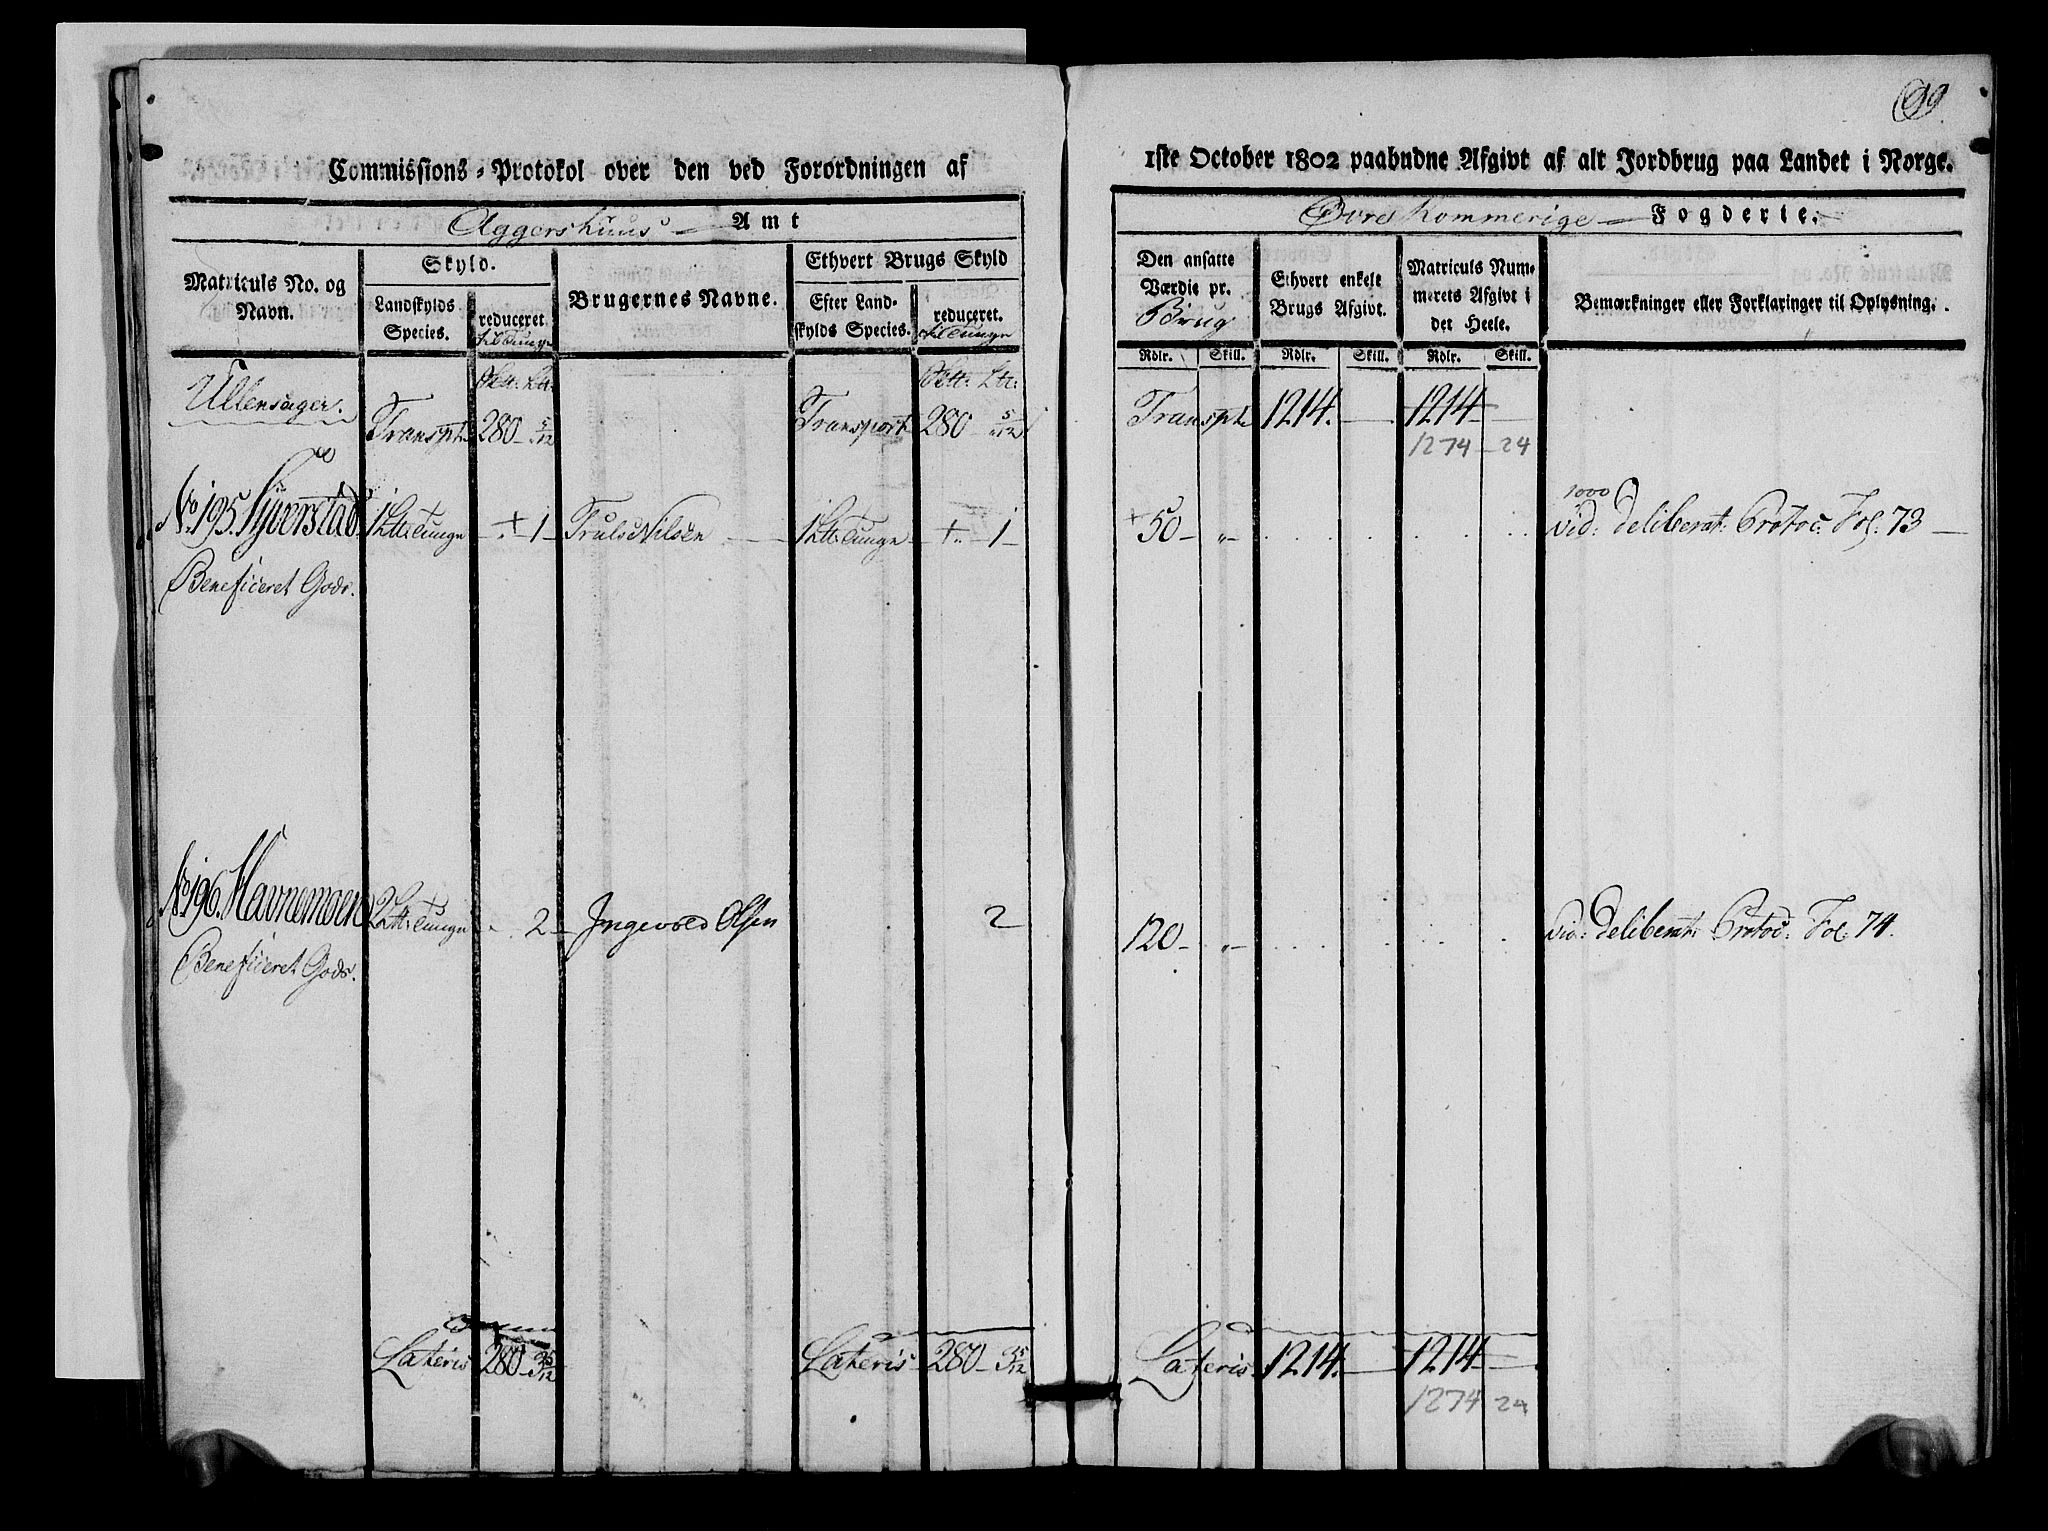 99.
Commissions-Protokol over den ved Forordningen af
1ste October 1802 paabudne Afgivt af alt Jordbrug paa Landet i Norge.
Aggershuus Amt
Øvre Rommerige Fogderie.
Matriculs No. og Navn.
Skyld.
Landskylds Species.
reduceret
Brugernes Navne.
Ethvert Brugs Skyld
Efter Landskylds Species.
reduceret.
Den ansatte Værdie pr. Brug
Ethvert enkelt Brugs Afgivt.
Matriculs Nummerets Afgivt i det Heele.
Bemærkninger eller Forklaringer til Oplysning.
Rdlr. Skill. Rdlr. Skill. Rdlr. Skill.
Ullensager.
Transpt 280 - 5/12
Transport 280 5/12
Transpt 1214. — 1214 —
1274 - 24
No. 195. Tyverstad 1 Lt: Tunge + 1 Truls Nilsen 1 Lt: Tunge + 1
+ 50 - „ -
1000
vid: deliberat: Protoc: Fol: 73
Beneficeret Gods.
No. 196. Havnemoen 2 Lt: Tunge 2 Ingevold Olsen 2
120 - „ -
vid: deliberat: Protoc: Fol: 74.
Beneficeret Gods.
Lateris 280 - 3 5/12
Lateris 280 - 3 5/12
Lateris 1214. — 1214 —
1274 24